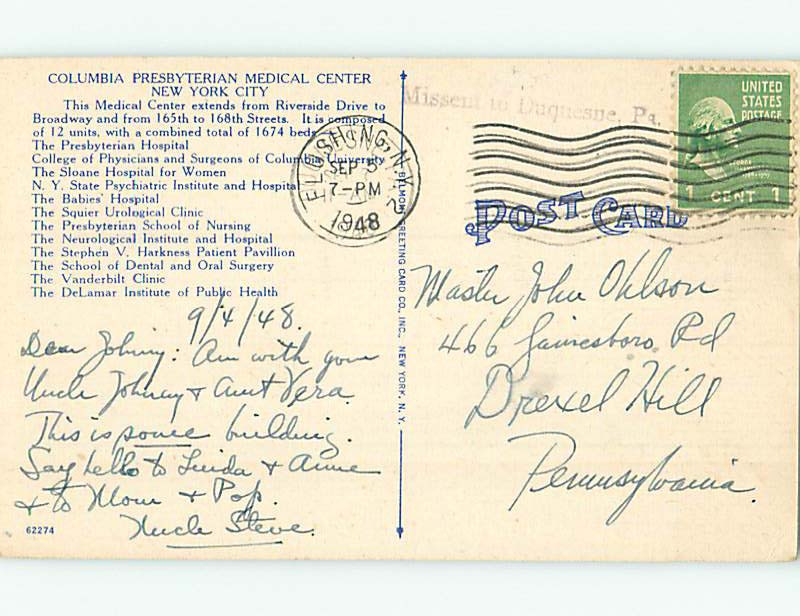 COLUMBIA PRESBYTERIAN MEDICAL CENTER
NEW YORK CITY
This Medical Center extends from Riverside Drive to
Broadway and from 165th to 168th Streets. It is composed
of 12 units, with a combined total of 1674 beds
The Presbyterian Hospital
College of Physicians and Surgeons of Columbia University
The Sloane Hospital for Women
N. Y. State Psychiatric Institute and Hospital
The Babies' Hospital
The Squier Urological Clinic
The Presbyterian School of Nursing
The Neurological Institute and Hospital
The Stephen V. Harkness Patient Pavillion
The School of Dental and Oral Surgery
The Vanderbilt Clinic
The DeLamar Institute of Public Health
9/4/48.
Dear Johnny: Am with your
Uncle Johnny & Aunt Vera.
This is some building.
Say hello to Linda & Anne
& to Mom & Pop.
Uncle Steve.
62274
BELMONT GREETING CARD CO., INC., NEW YORK, N. Y.
FLUSHING, N.Y.
SEP 5
7-PM
1948
Missent to Duquesne, Pa.
UNITED
STATES
POSTAGE
1 CENT 1
POST CARD
Master John Ohlson
466 Gainesboro Rd
Drexel Hill
Pennsylvania.